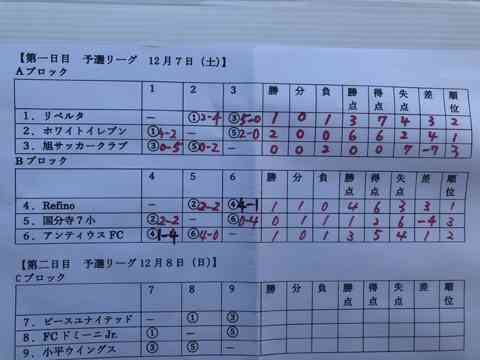 【第一日目 予選リーグ 12月7日（土）】
Aブロック
1 2 3 勝 分 負 勝点 得点 失点 差 順位
1．リベルタ － ①2-4 ③5-0 1 0 1 3 7 4 3 2
2．ホワイトイレブン ①4-2 － ⑤2-0 2 0 0 6 6 2 4 1
3．旭サッカークラブ ③0-5 ⑤0-2 － 0 0 2 0 0 7 -7 3
Bブロック
4 5 6 勝 分 負 勝点 得点 失点 差 順位
4．Refino － ②2-2 ④4-1 1 1 0 4 6 3 3 1
5．国分寺7小 ②2-2 － ⑥0-4 0 1 1 1 2 6 -4 3
6．アンティウスFC ④1-4 ⑥4-0 － 1 0 1 3 5 4 1 2
【第二日目 予選リーグ12月8日（日）】
Cブロック
7 8 9 勝 分 負 勝点 得点 失点 差 順位
7．ピースユナイテッド － ① ③
8．FCドミーニJr. ① － ⑤
9．小平ウイングス ③ ⑤ －